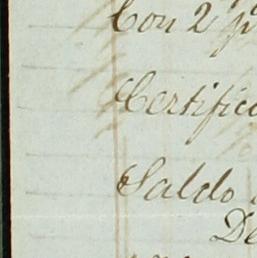 Con 2 p
Certific
Saldo
De